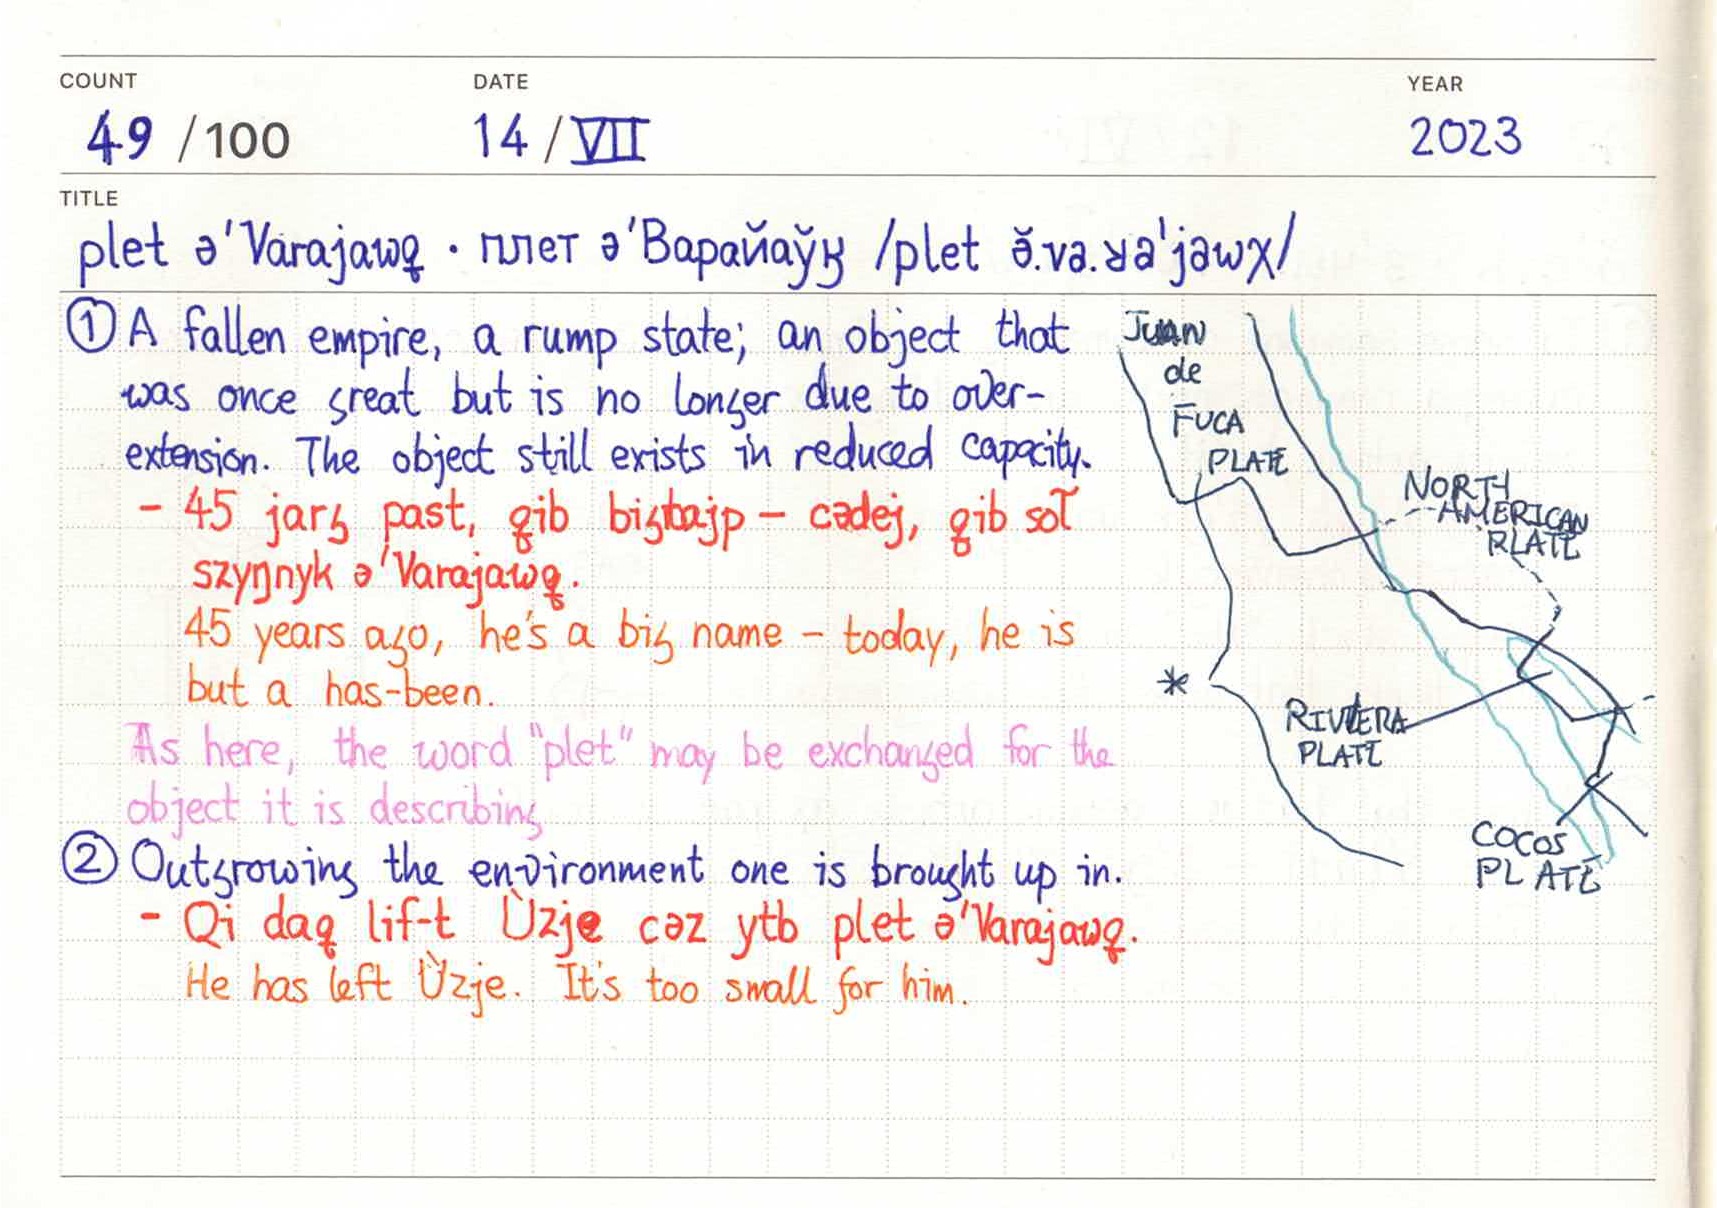 COUNT DATE YEAR
49 /100 14 / VII 2023
TITLE
plet ə'Varajawꝗ · плет ə'Варайаўӄ /plet ə̆.va.ʁa'jawχ/
① A fallen empire, a rump state; an object that
was once great but is no longer due to over-
extension. The object still exists in reduced capacity.
- 45 jarꝣ past, ꝗib bigtajp – cədej, ꝗib sot
szyŋnyk ə'Varajawꝗ.
45 years ago, he's a big name – today, he is
but a has-been.
As here, the word "plet" may be exchanged for the
object it is describing
② Outgrowing the environment one is brought up in.
- Qi daꝗ lif-t Ùzje cəz ytb plet ə'Varajawꝗ.
He has left Ùzje. It's too small for him.
JUAN
de
FUCA
PLATE
NORTH
AMERICAN
PLATE
*
RIVIERA
PLATE
COCOS
PLATE